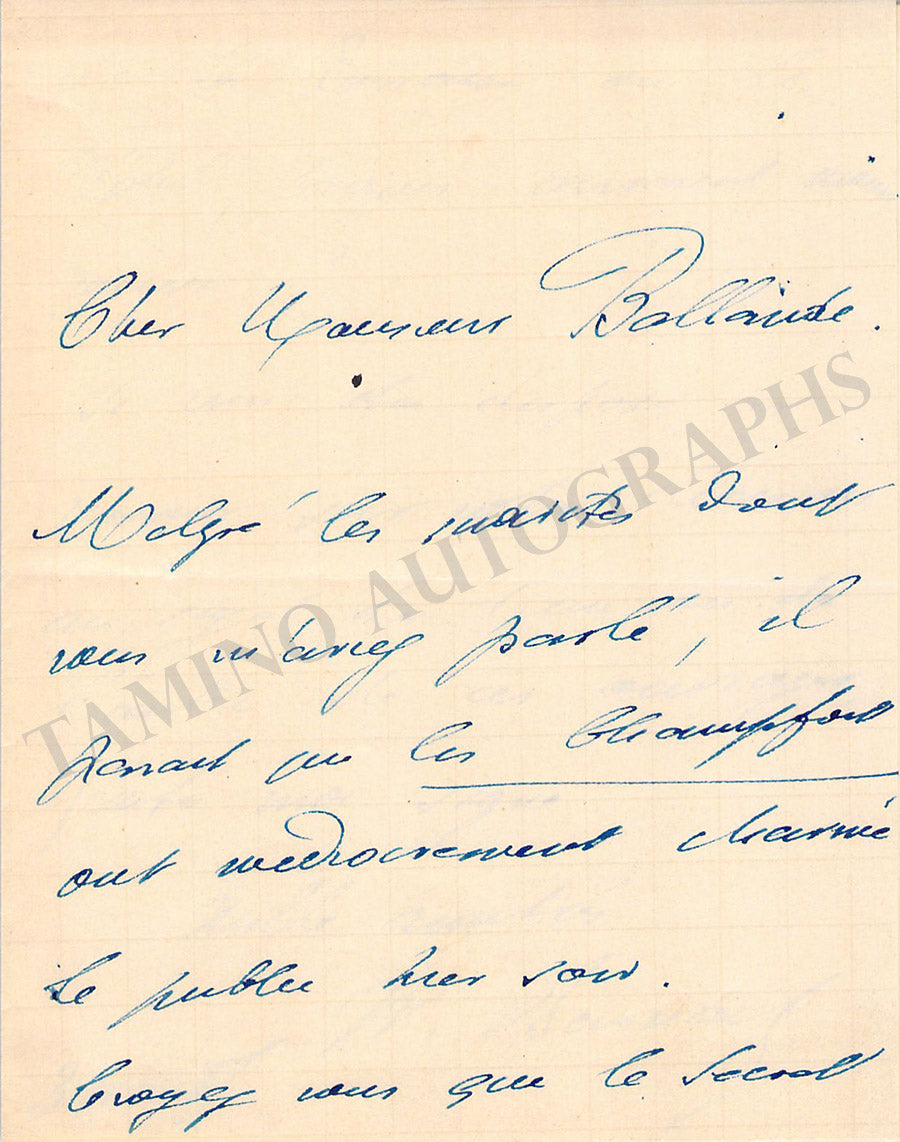 Cher Monsieur Ballande.
Malgré les mérites dont
vous m'aviez parlé, il
parait que les Champfort
ont médiocrement charmé
le public hier soir.
Croyez vous que le Secret
TAMINO AUTOGRAPHS